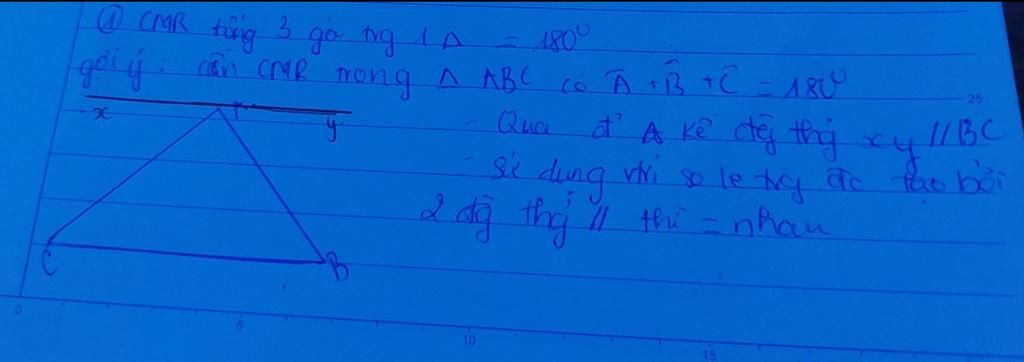 ① CMR tổng 3 góc trg 1 Δ = 180⁰
gợi ý: cần CMR trong Δ ABC có Â + B̂ + Ĉ = 180⁰
x
y
- Qua đ' A kẻ đg thg xy // BC
- Sử dụng vtrí so le trg đc tạo bởi
2 đg thg // thì = nhau
C
B
25
0 5 10 15